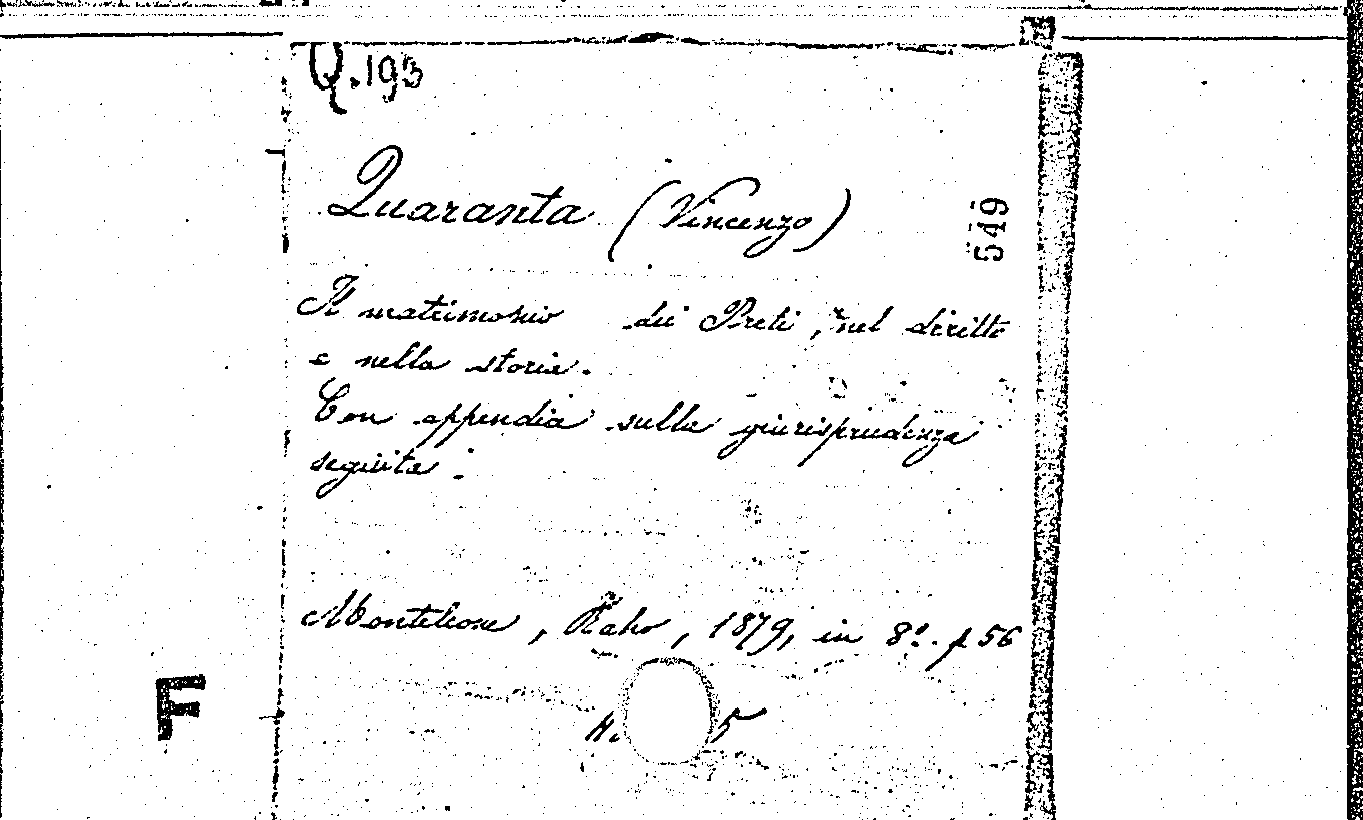 Q.193
Quaranta (Vincenzo)
549
Il matrimonio dei Preti, nel diritto
e nella storia.
Con appendice sulla giurisprudenza
seguita.
Monteleone, Raho, 1879, in 8º. p 56
F